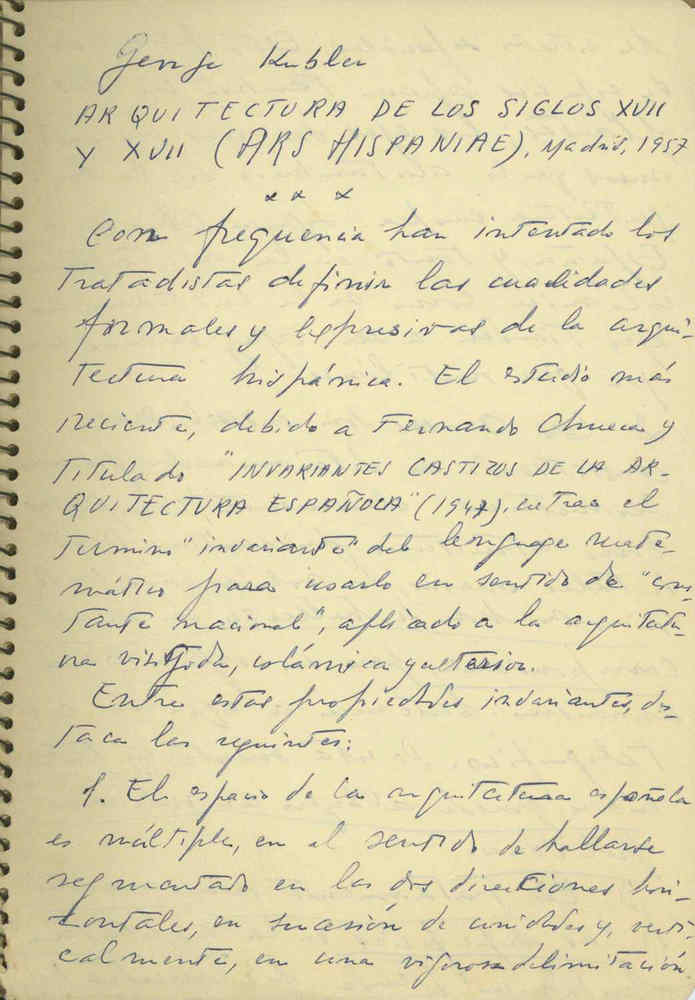 George Kubler
ARQUITECTURA DE LOS SIGLOS XVII
Y XVII (ARS HISPANIAE), Madrid, 1957
x x x
Con frequencia han intentado los
tratadistas definir las cualidades
formales y expresivas de la arqui-
tectura hispánica. El estudio más
reciente, debido a Fernando Chueca y
titulado "INVARIANTES CASTIZOS DE LA AR-
QUITECTURA ESPAÑOLA" (1947), extrae el
termino "invariante" del lenguage mate-
mático para usarlo en sentido de "cons-
tante nacional", aplicado a la arquitectu-
ra visigoda, islámica y ulterior.
Entre estas propiedades invariantes, des-
taca las siguientes:
1. El espacio de la arquitectura española
es múltiple, en el sentido de hallarse
segmentado en las dos direcciones hori-
zontales, en sucesión de unidades y, verti-
calmente, en una vigorosa delimitación